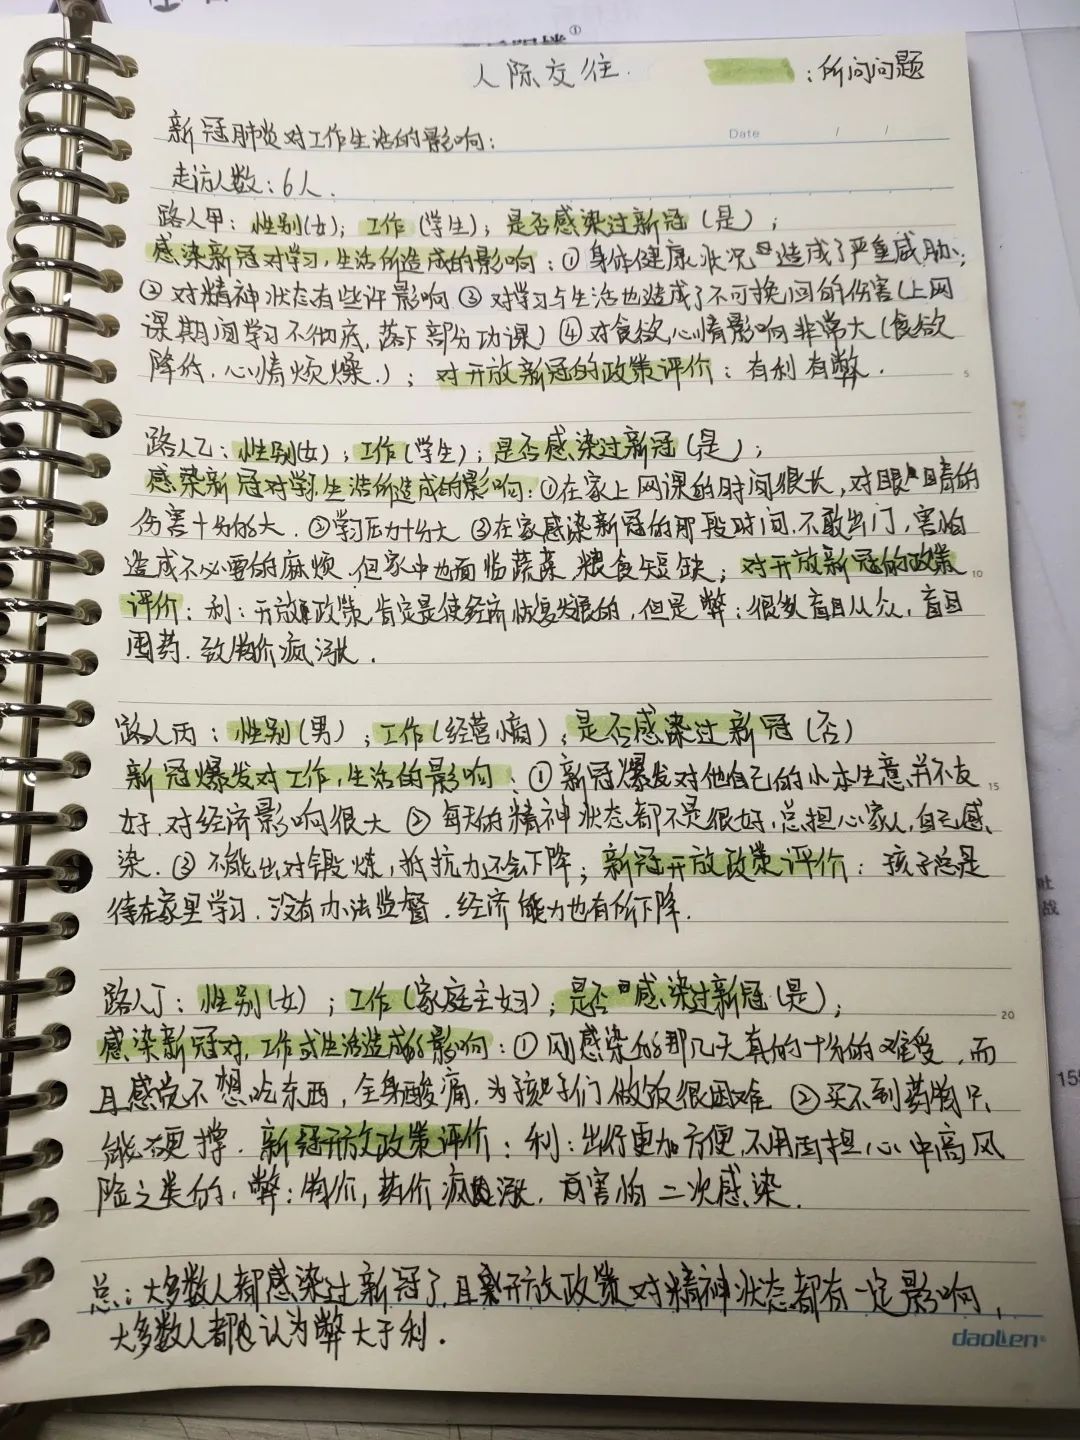 人际交往.
:所问问题
Date / /
新冠肺炎对工作生活的影响:
走访人数:6人.
路人甲:性别(女);工作(学生);是否感染过新冠(是);
感染新冠对学习,生活所造成的影响:①身体健康状况造成了严重威胁;
②对精神状态有些许影响③对学习与生活也造成了不可挽回的伤害(上网
课期间学习不彻底,落下部分功课)④对食欲,心情影响非常大(食欲
降低,心情烦燥.);对开放新冠的政策评价:有利有弊.
5
路人乙:性别(女);工作(学生);是否感染过新冠(是);
感染新冠对学习,生活所造成的影响:①在家上网课的时间很长,对眼睛的
伤害十分的大.②学习压力十分大③在家感染新冠的那段时间,不敢出门,害怕
造成不必要的麻烦.但家中也面临蔬菜,粮食短缺;对开放新冠的政策
10
评价:利:开放政策,肯定是使经济恢复发展的,但是弊:很多盲目从众,盲目
囤药.致物价疯涨.
路人丙:性别(男);工作(经营);是否感染过新冠(否)
新冠爆发对工作,生活的影响:①新冠爆发对他自己的小本生意并不友
15
好,对经济影响很大②每天的精神状态都不是很好,总担心家人,自己感
染.③不能出对锻炼,抵抗力还会下降;新冠开放政策评价:孩子总是
待在家里学习.没有办法监督.经济能力也有所下降.
路人丁:性别(女);工作(家庭主妇);是否感染过新冠(是);
20
感染新冠对,工作或生活造成的影响:①刚感染的那几天真的十分的难受,而
且感觉不想吃东西,全身酸痛,为孩子们做饭很困难②买不到药物只
能硬撑.新冠开放政策评价:利:出行更加方便,不用担心中高风
险之类的,弊:物价,药价疯涨.害怕二次感染.
总:大多数人都感染过新冠了,且开放政策对精神状态都有一定影响,
大多数人都认为弊大于利.
daolen